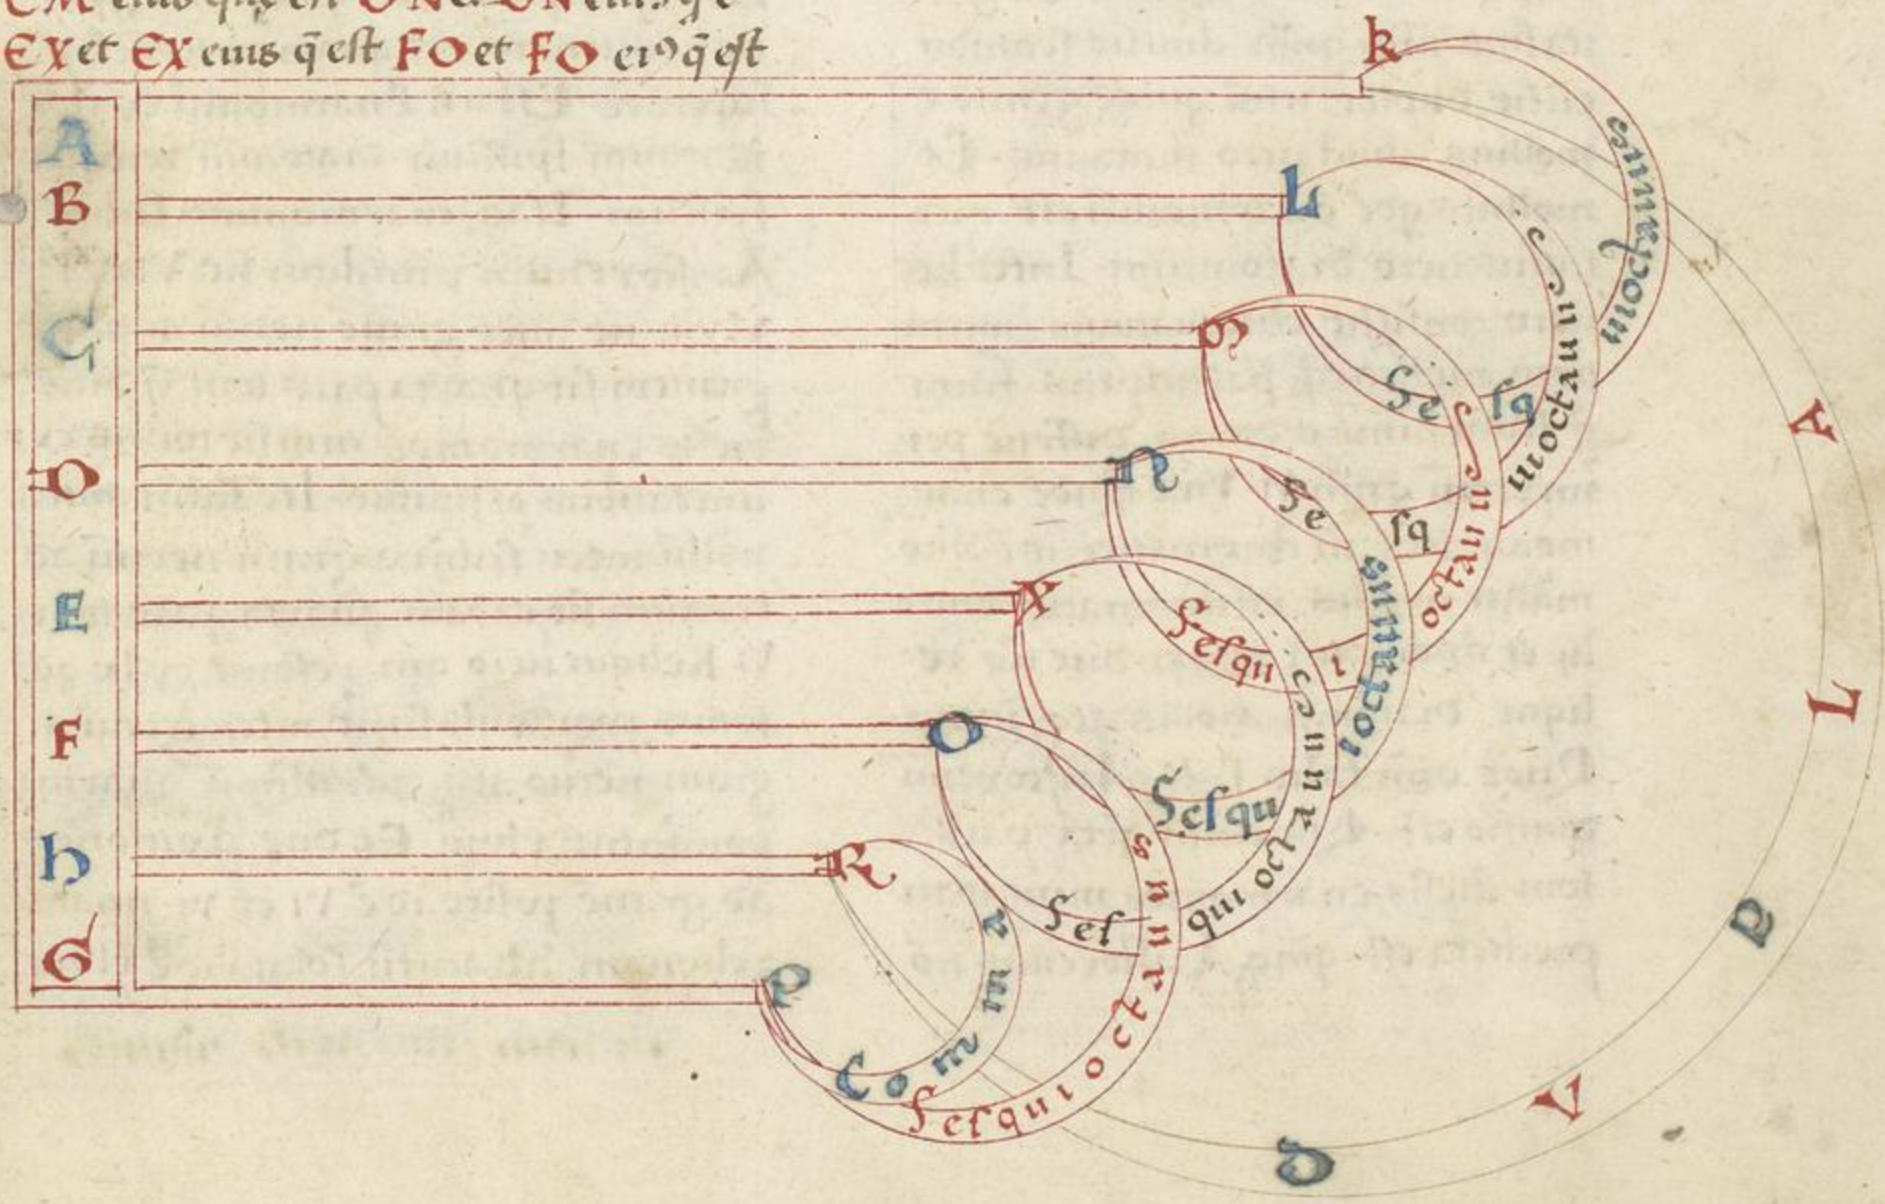 EX et EX eius q̄ est FO et FO ei⁹ q̄ est
A
B
C
D
E
F
h
G
k
L
M
N
X
O
R
P
Sesquioctauus
Sesquioctauus
Sesquioctauus
Sesquioctauus
Sesquioctauus
Sesquioctauus
Comma
D V P L A